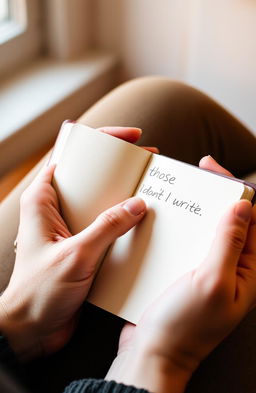 those
idon't I write.